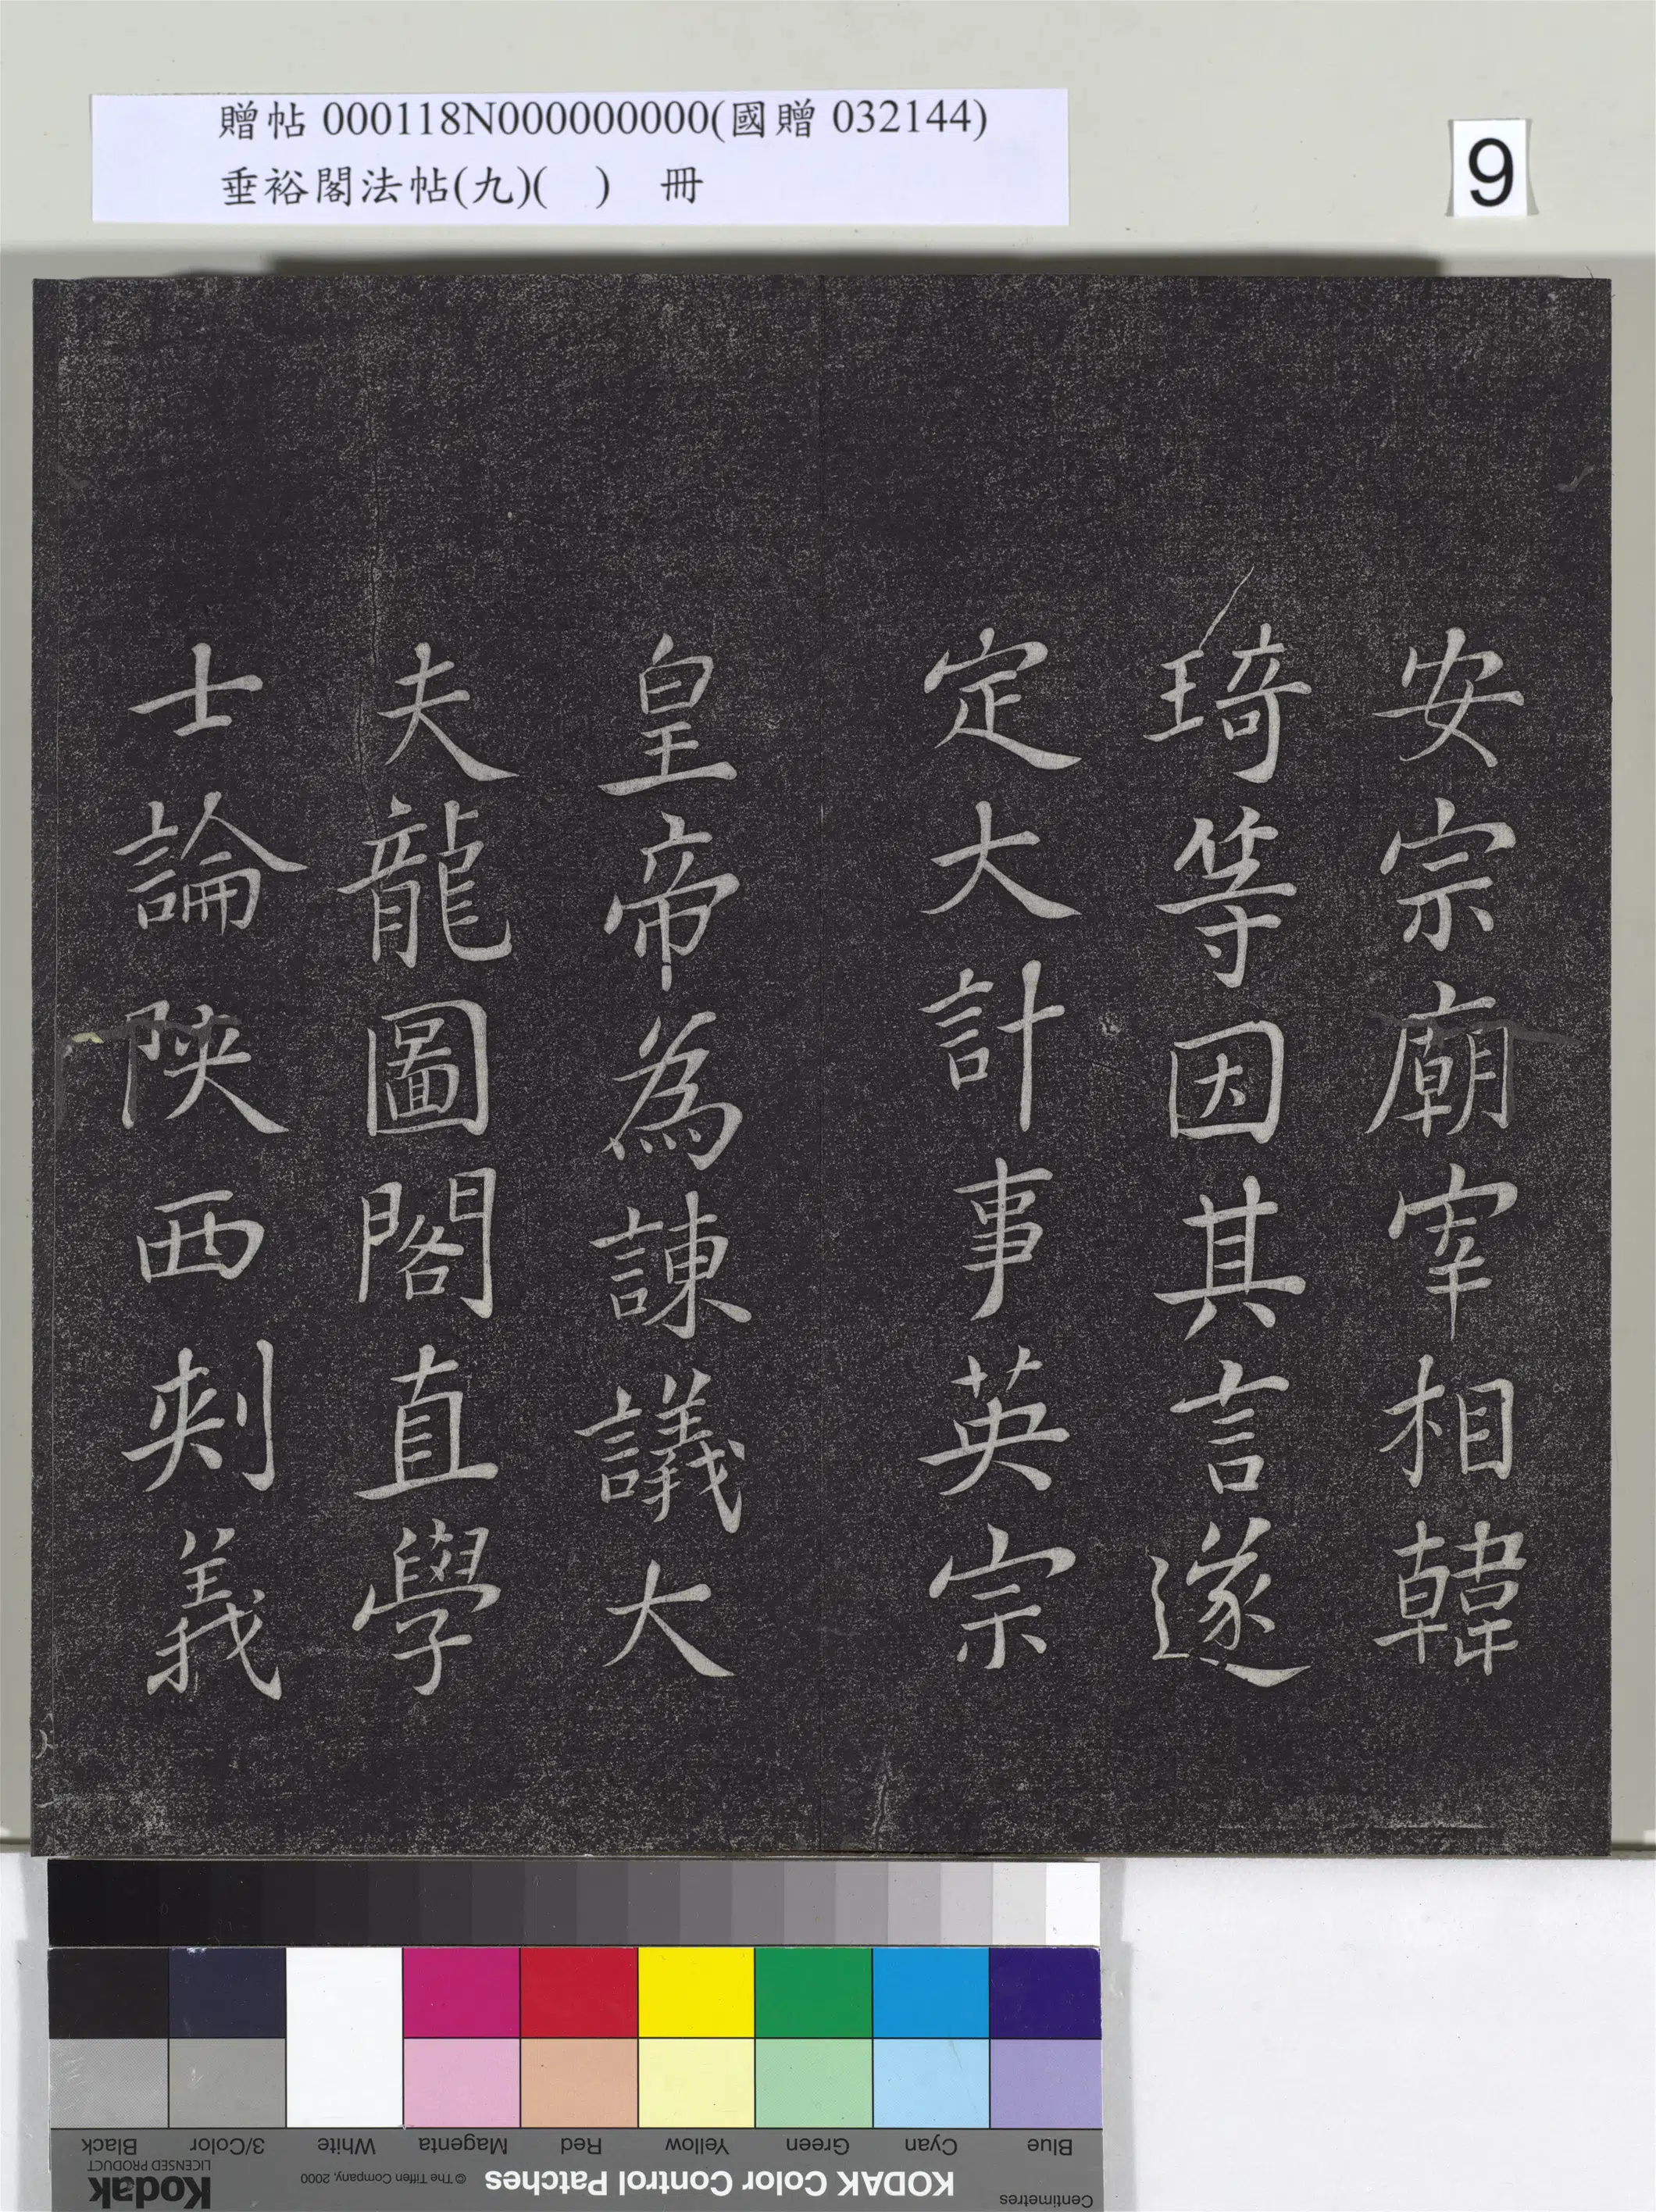 贈帖 000118N000000000(國贈 032144)
垂裕閣法帖(九)(　) 冊
9
安宗廟宰相韓
琦等因其言遂
定大計事英宗
皇帝為諫議大
夫龍圖閣直學
士論陝西刺義
Blue
Cyan
Green
Yellow
Red
Magenta
White
3/Color
Black
Centimetres
KODAK Color Control Patches
© The Tiffen Company, 2000
Kodak
LICENSED PRODUCT